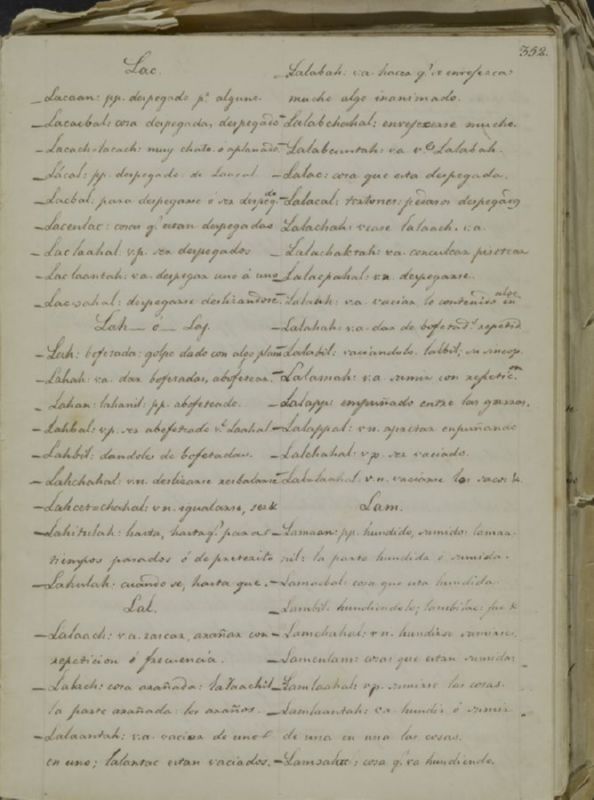 352.
Lac.
Lacaan: pp. despegado pr. alguno.
Lacacbal: cosa despegada, despegado
Lacach-lacach: muy chato. ó aplanado
Lácal: pp. despegado de
Lacbal: para despegarse ó ser despegdo
Lacenlac: cosas q. estan despegadas
Lac laahal v.p. ser despegados
Lac laantah: va. despegar uno á uno
Lac-sahal: despegarse deslizandose
Lah _ ó _ Laj.
Lah: bofetada: golpe dado con algo plano
Lahah: va. dar bofetadas, abofetear.
Lahan: lahanil: pp. abofeteado.
Lahbal: v.p. ser abofeteado v. Laahal
Lahbil: dandole de bofetadas.
Lahchahal: v.n. deslizarse resbalarse
Lahcetchahal: v n. igualarse, ser &
Lahitulah: hasta, hasta q. para
tiempos pasados ó de preterito
Lahulah: cuando se, hasta que.
Lal.
Lalaach: v a. rascar, arañar con
repeticion ó frecuencia.
Lalach: cosa arañada: lalaachil
la parte arañada: los araños.
Lalaantah: v.a. vaciar de uno
en uno; lalantac estan vaciados.
Lalabah: v.a. hacer q. se envejezca
mucho algo inanimado.
Lalabchahal: envejecerse mucho.
Lalabcuntah: v.a v. Lalabah.
Lalac: cosa que esta despegada.
Lalacal: despegados
Lalachah: vease lalaach. v.a.
Lalachaktah: va conculcar pisotear
Lalacpahal: v.n. despegarse.
Lalaah: v.a. vaciar lo contenido en algo
Lalahah: v.a. dar de bofetads. repetid
Lalabil: vaciandolo. lalbil, su sincop.
Lalamah: v.a sumir con repeticion
Lalapp: empuñado entre las garras.
Lalappal: v n. apretar empuñando
Lalchahal: v.p. ser vaciado.
Lalalaahal v.n. vaciarse los sacos &.
Lam.
Lamaan: pp. hundido, sumido: lamaa
nil: la parte hundida ó sumida.
Lamacbal: cosa que esta hundida.
Lambil: hundiendolo; lambilac: fue &
Lamchahal: v n. hundirse sumirse.
Lamenlam: cosas que estan sumidas
Lamlaahal: v.p. sumirse las cosas.
Lamlaantah: v.a. hundir ó sumir
de una en una las cosas.
cosa q. va hundiendo.